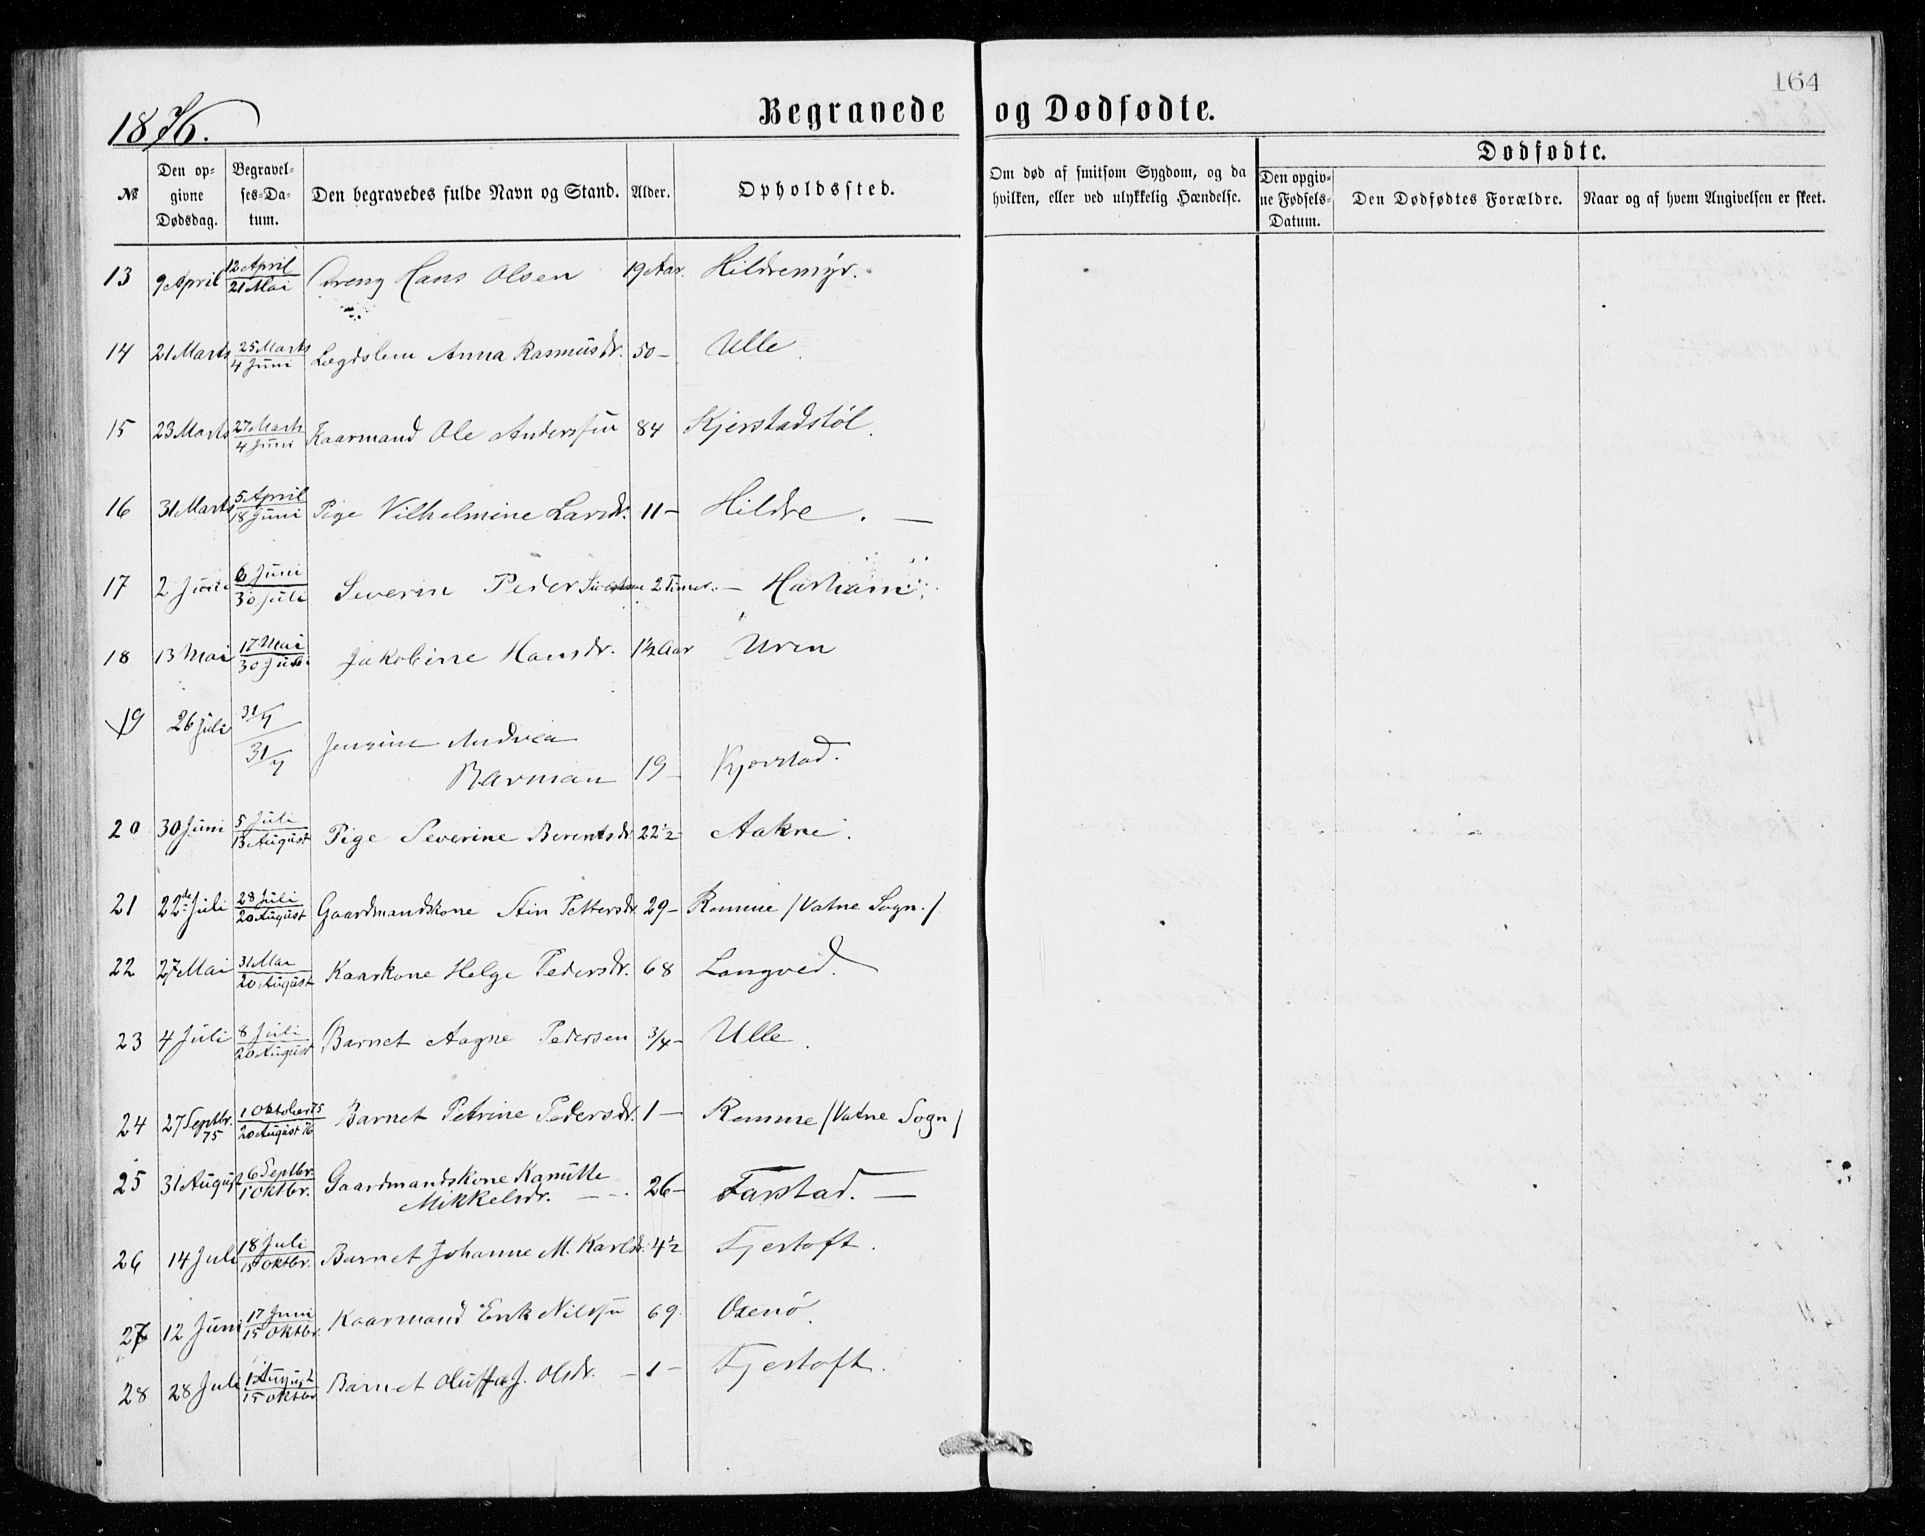 164
1876.
Begravede og Dødfødte.
№
Den opgivne Dødsdag.
Begravelses-Datum.
Den begravedes fulde Navn og Stand.
Alder.
Opholdssted.
Om død af smitsom Sygdom, og da hvilken, eller ved ulykkelig Hændelse.
Dødfødte.
Den opgivne Fødsels-Datum.
Den Dødfødtes Forældre.
Naar og af hvem Angivelsen er skeet.
13 9 April 12 April 21 Mai Dreng Hans Olsen 19 Aar. Hildremyr.
14 21 Marts 25 Marts 4 Juni Lægdslem Anna Rasmusdr. 50 – Ulle
15 23 Marts 27 Marts 4 Juni Kaarmand Ole Anderssen 84 Kjerstadstøl.
16 31 Marts 5 April 18 Juni Pige Vilhelmine Larsdr. 11 – Hildre. –
17 2 Juni 6 Juni 30 Juli Severin Peder 2 Timer. – Harham
18 13 Mai 17 Mai 30 Juli Jakobine Hansdr. 1½ Aar Uren
19 26 Juli 31/7 31/7 Jensine Andrea
Barman 19 – Kjerstad.
20 30 Juni 5 Juli 13 August Pige Severine Berentsdr. 22½ Aakre.
21 22de Juli 28 Juli 20 August Gaardmandskone Stin Pettersdr. 29 – Remme /Vatne Sogn./
22 27 Mai 31 Mai 20 August Kaarkone Helge Pedersdr. 68 Langved.
23 4 Juli 8 Juli 20 August Barnet Aagne Pedersen ¾ – Ulle.
24 27 Septbr. 75 1 Oktober 75 20 August 76 Barnet Petrine Pedersdr. 1 – Remme /Vatne Sogn/
25 31 August 6 Septbr. 1 Oktbr. Gaardmandskone Kanutte
Mikkelsdr. – – 26 – Farstad. –
26 14 Juli 18 Juli 15 Oktbr. Barnet Johanne M. Karlsdr. 4½ Fjertoft.
27 12 Juni 17 Juni 15 Oktbr. Kaarmand Erik Nilssen 69. Oxenø.
28 28 Juli 1 August 15 Oktbr Barnet J. Olsdr. – 1 – Fjertoft.